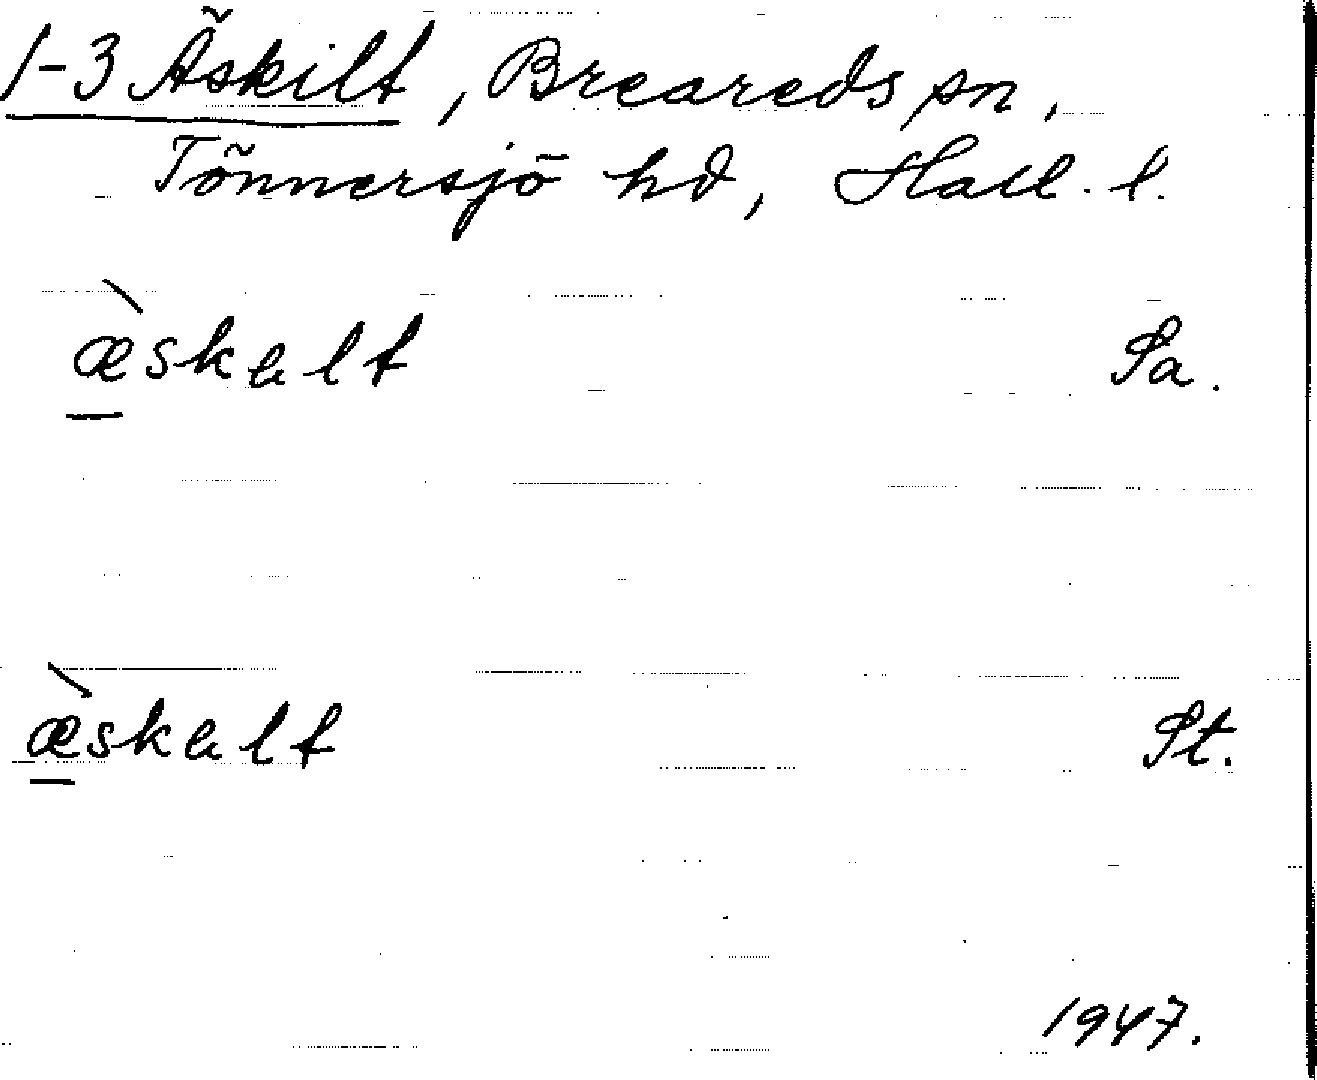 1-3 Äskilt, Breareds sn,
Tönnersjö hd, Hall. l.
æ̀skɐlt Sa.
æ̀skɐlt St.
1947.